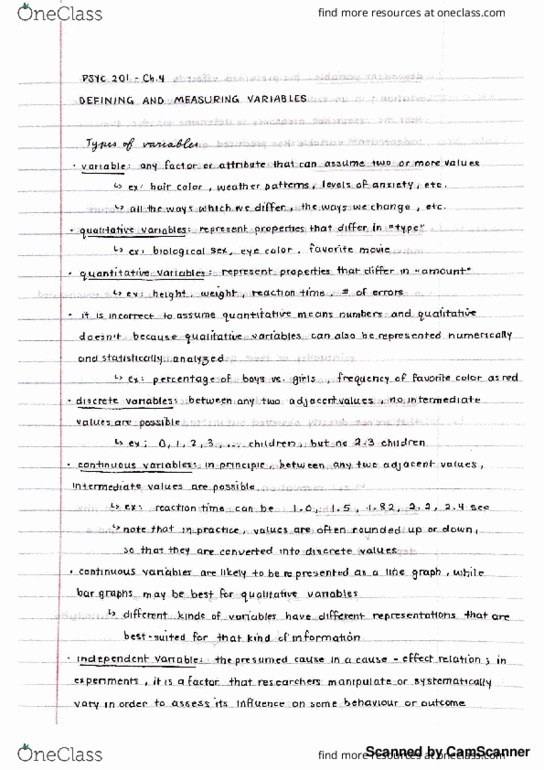 OneClass
find more resources at oneclass.com
PSYC 201 - Ch.4
DEFINING AND MEASURING VARIABLES
Types of variables
· variable: any factor or attribute that can assume two or more values
↳ ex: hair color, weather patterns, levels of anxiety, etc.
↳ all the ways which we differ, the ways we change, etc.
· qualitative variables: represent properties that differ in "type"
↳ ex: biological sex, eye color, favorite movie
· quantitative variables: represent properties that differ in "amount"
↳ ex: height, weight, reaction time, # of errors
· it is incorrect to assume quantitative means numbers and qualitative
doesn't because qualitative variables can also be represented numerically
and statistically analyzed
↳ ex: percentage of boys vs. girls, frequency of favorite color as red
· discrete variables: between any two adjacent values, no intermediate
values are possible
↳ ex: 0, 1, 2, 3, ... children, but no 2.3 children
· continuous variables: in principle, between any two adjacent values,
intermediate values are possible
↳ ex: reaction time can be 1.0, 1.5, 1.82, 2.2, 2.4 sec
↳ note that in practice, values are often rounded up or down,
so that they are converted into discrete values
· continuous variables are likely to be represented as a line graph, while
bar graphs may be best for qualitative variables
↳ different kinds of variables have different representations that are
best-suited for that kind of information
· independent variable: the presumed cause in a cause-effect relation; in
experiments, it is a factor that researchers manipulate or systematically
vary in order to assess its influence on some behaviour or outcome
OneClass
find more resources at oneclass.com
Scanned by CamScanner